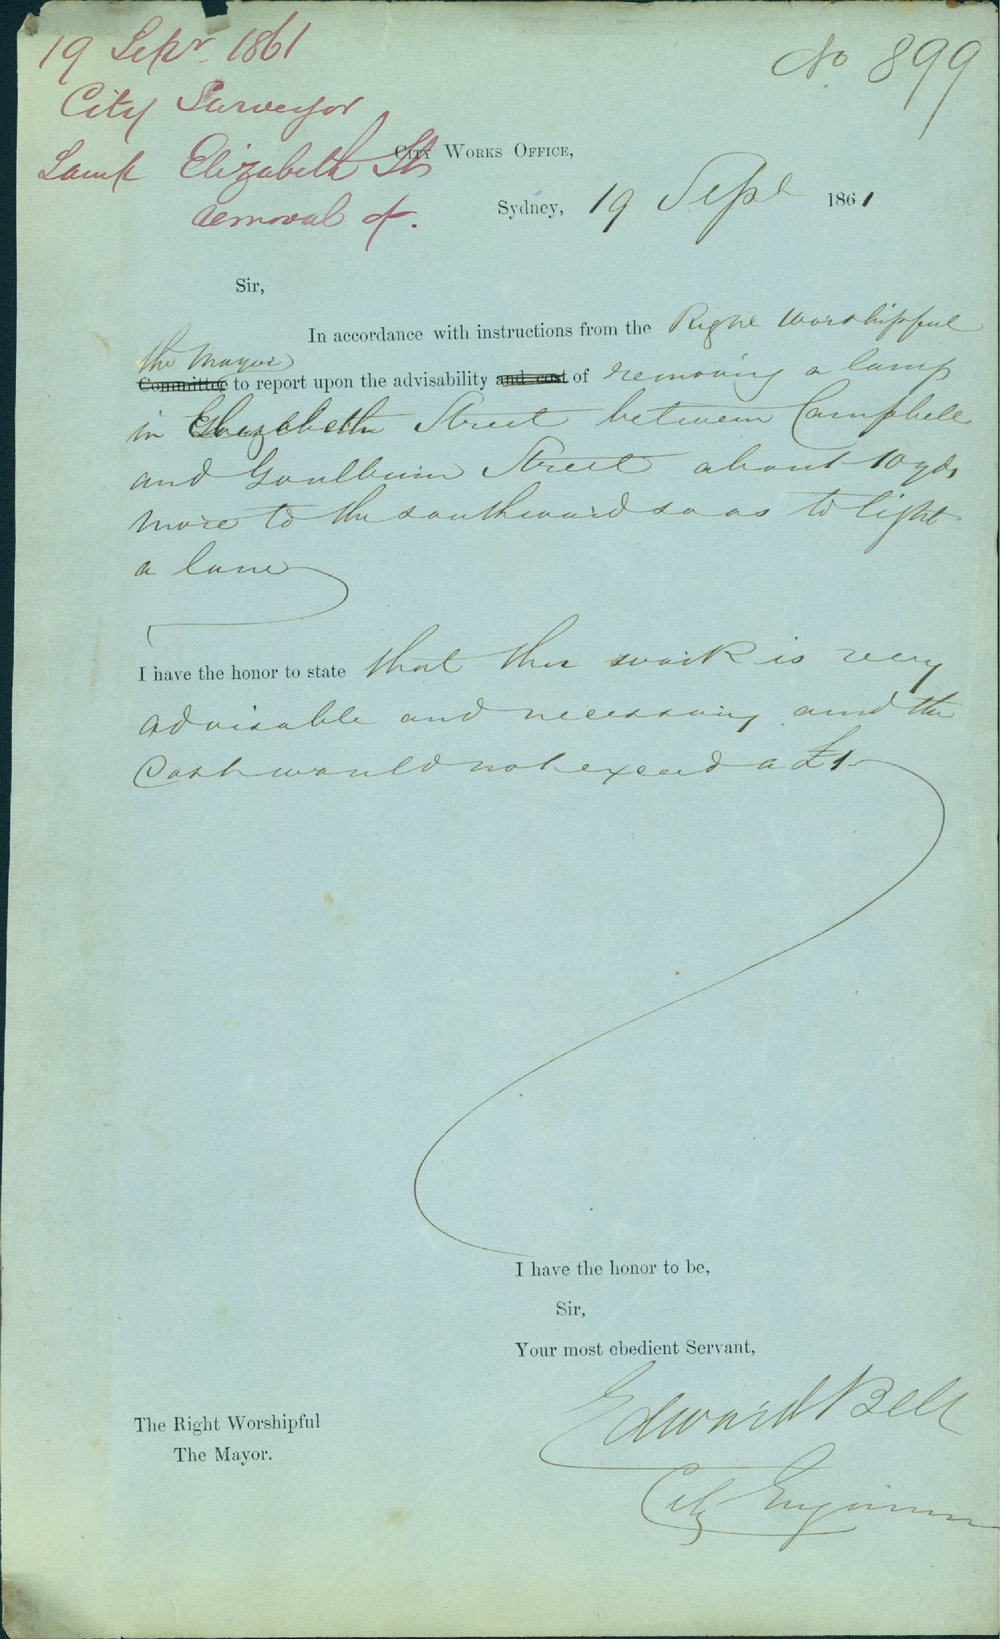 19 Sepr 1861
City Surveyor
Lamp Elizabeth St
removal of.
No 899
City Works Office,
Sydney, 19 Sept 1861
Sir,
In accordance with instructions from the Right Worshipful
the Mayor
Committee to report upon the advisability and cost of removing a lamp
in Elizabeth Street between Campbell
and Goulburn Street about 10 yds
more to the southward so as to light
a lane
I have the honor to state that this work is very
advisable and necessary and the
Cost would not exceed a £1
I have the honor to be,
Sir,
Your most obedient Servant,
Edward Bell
City Engineer
The Right Worshipful
The Mayor.